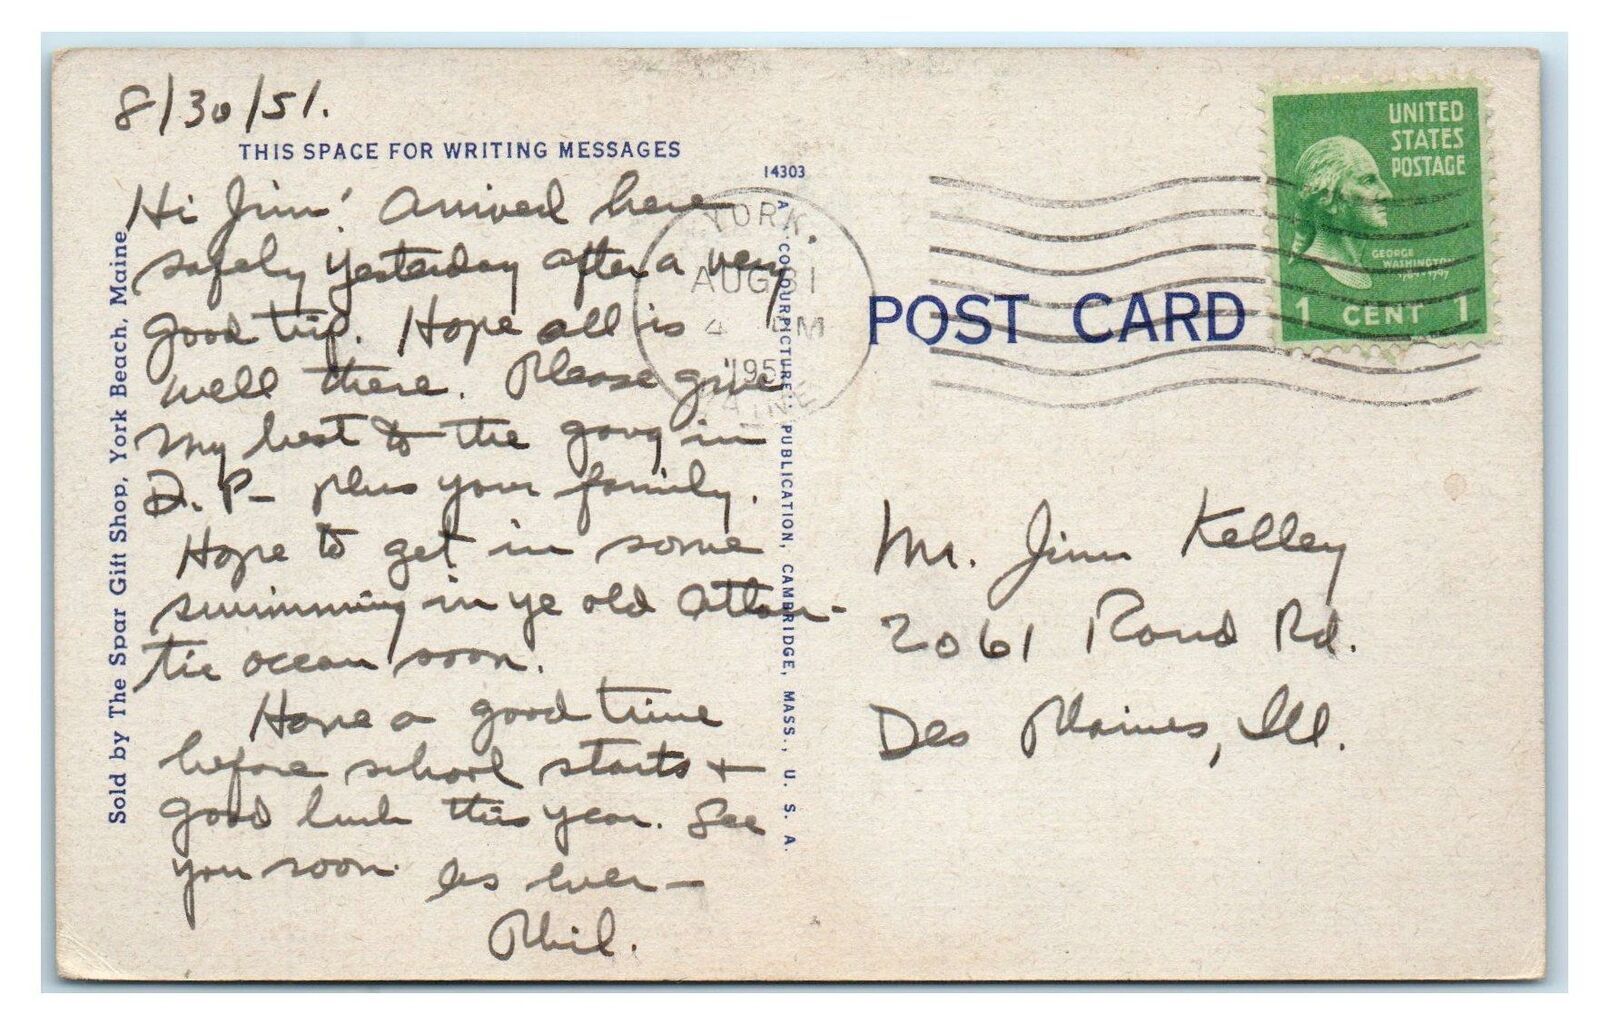 8/30/51.
THIS SPACE FOR WRITING MESSAGES
Hi Jim! Arrived here
safely yesterday after a very
good trip. Hope all is
well there. Please give
my best to the gang in
D. P— plus your family.
Hope to get in some
swimming in ye old Atlan-
tic ocean soon.
Have a good time
before school starts +
good luck this year. See
you soon. As ever—
Phil.
Sold by The Spar Gift Shop, York Beach, Maine
14303
A "COLOURPICTURE" PUBLICATION, CAMBRIDGE, MASS., U. S. A.
YORK,
AUG 31
4 PM
195
MAINE
POST CARD
UNITED
STATES
POSTAGE
GEORGE
WASHINGTON
1789-1797
1 CENT 1
Mr. Jim Kelley
2061 Rand Rd.
Des Plaines, Ill.